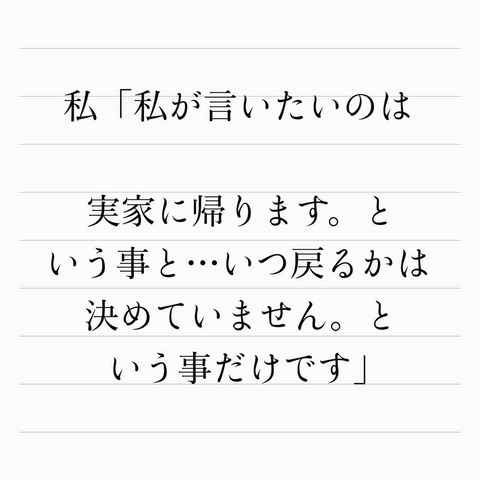 私「私が言いたいのは
実家に帰ります。と
いう事と…いつ戻るかは
決めていません。と
いう事だけです」